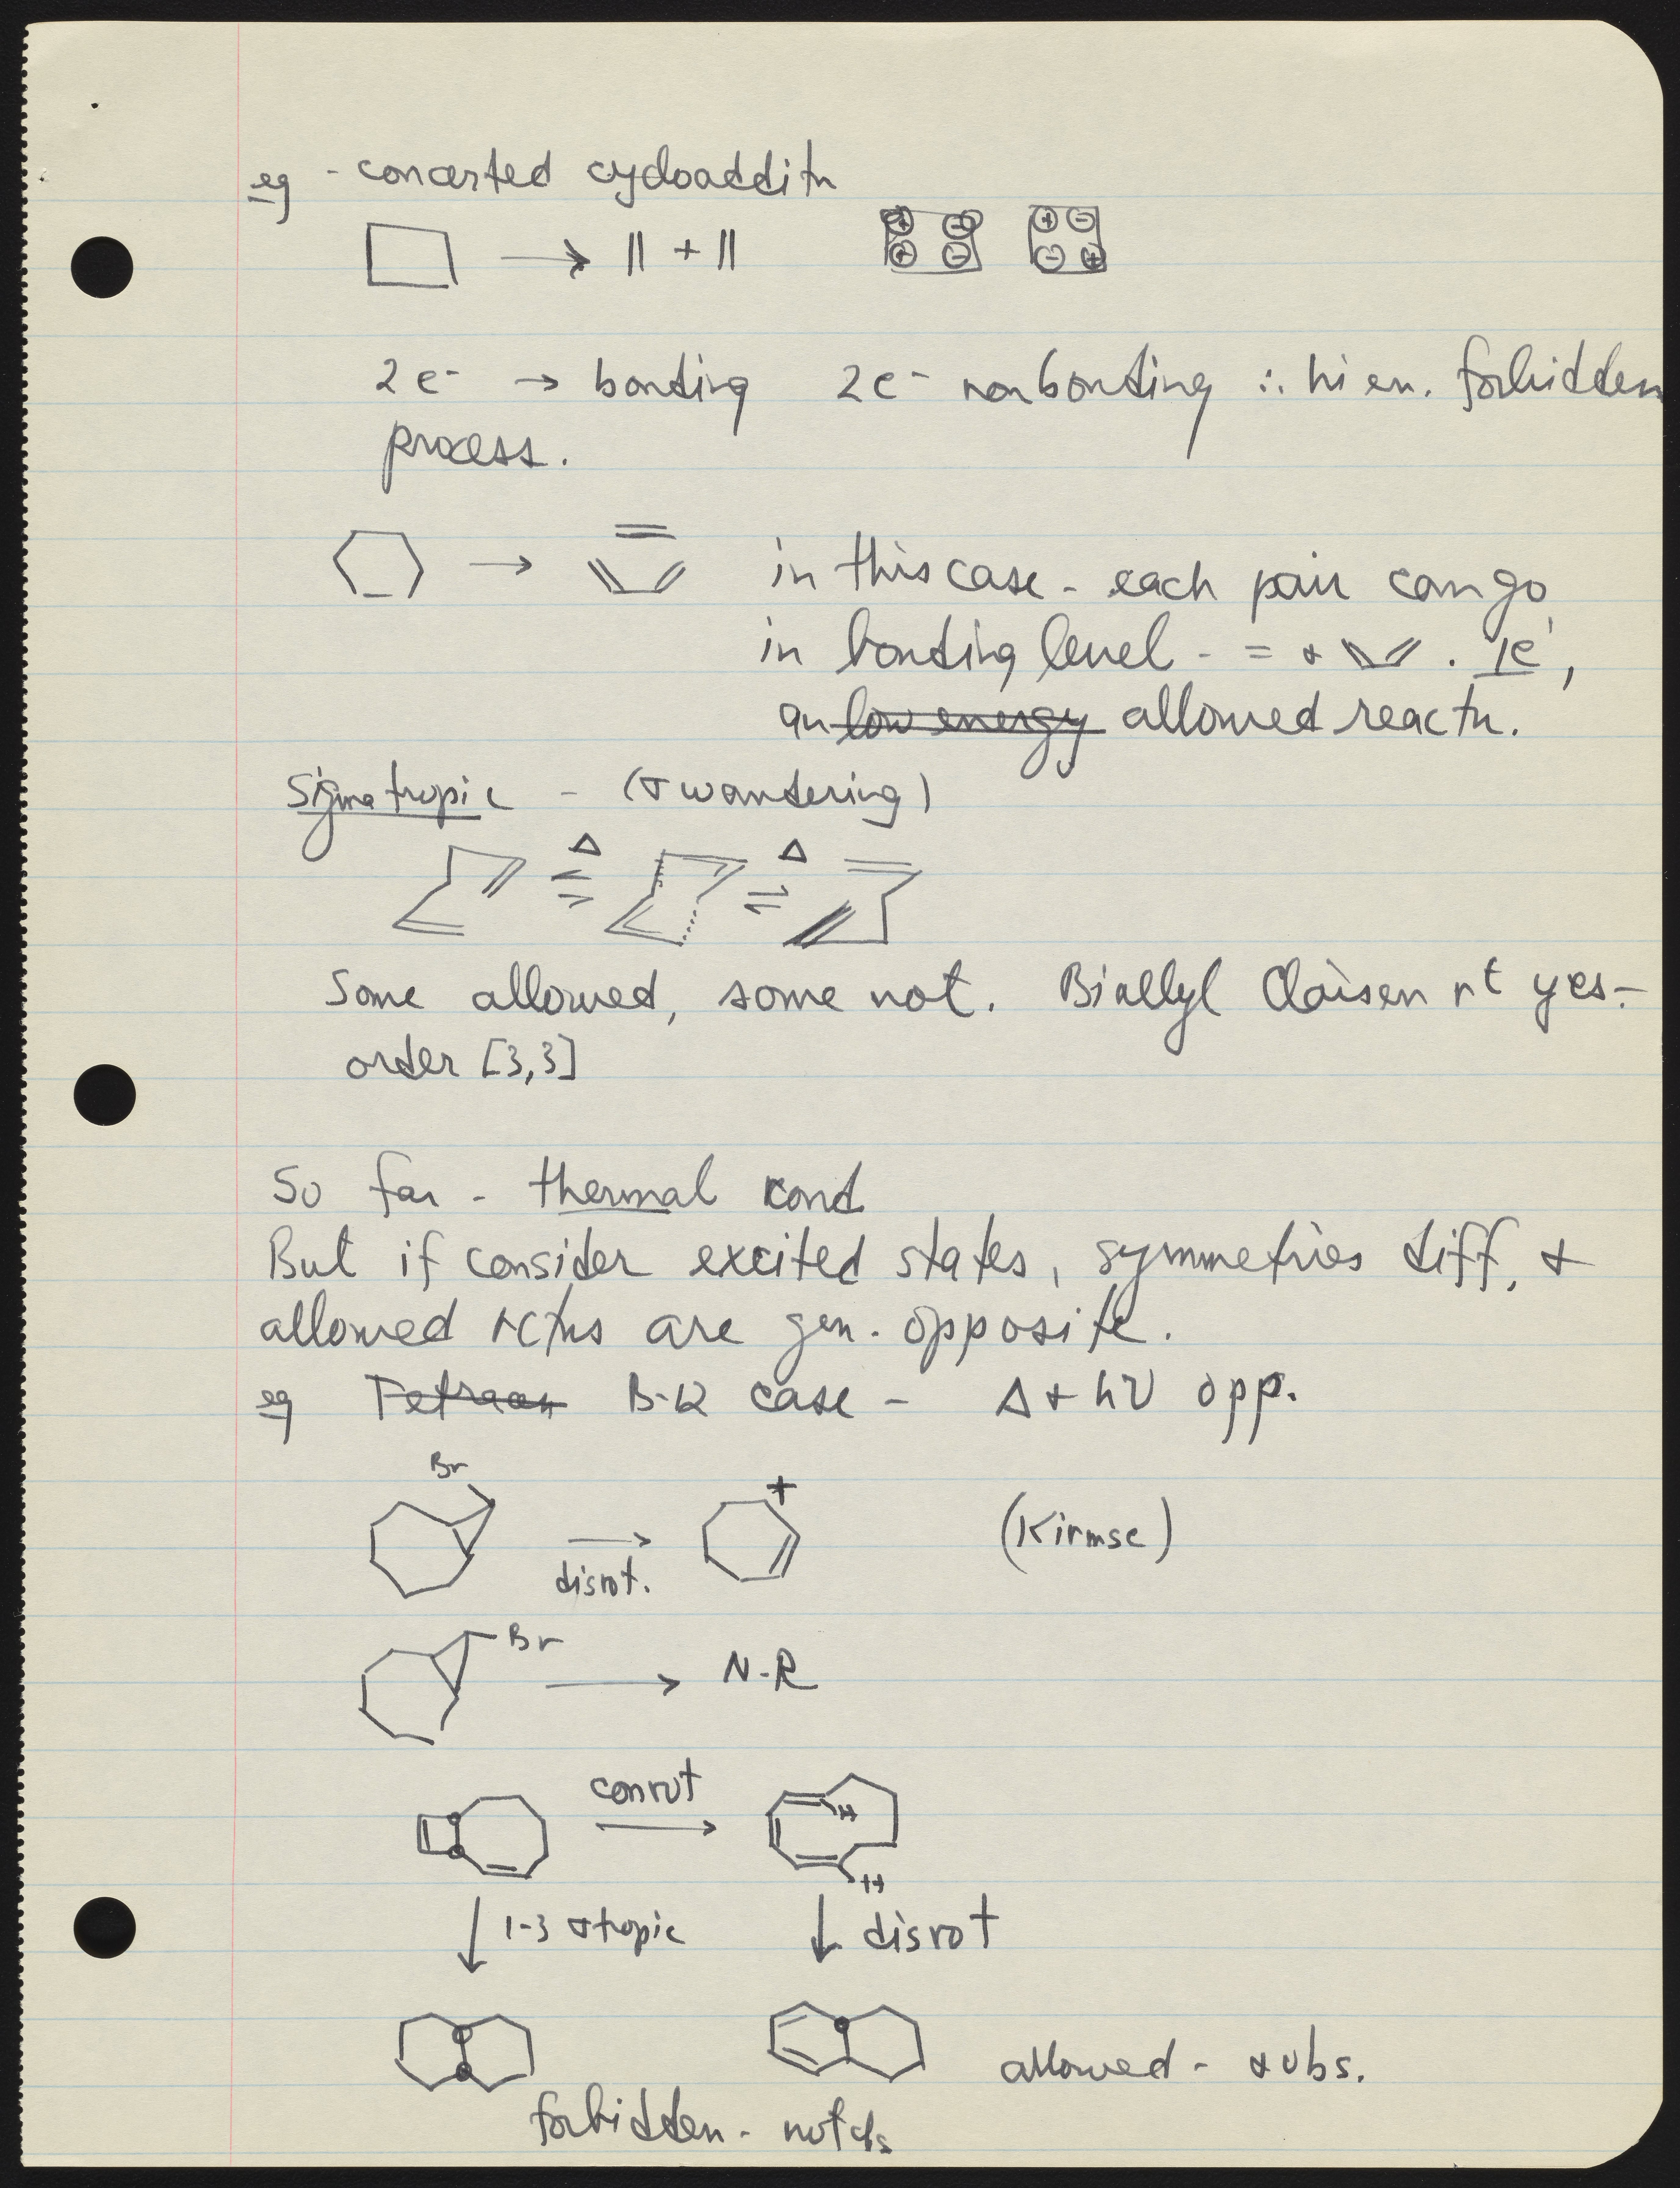 eg - concerted cycloadditn
□ → || + || ⊕ ⊖ ⊕ ⊖ ⊕ ⊖ ⊖ ⊕
2e⁻ → bonding 2e⁻ nonbonding ∴ hi en. forbidden
process.
→ in this case - each pair can go
in bonding level - = + . ie,
an low energy allowed reactn.
Sigmatropic - (σ wandering)
Δ ⇌ Δ ⇌
Some allowed, some not. Biallyl Claisen rt yes -
order [3,3]
So far - thermal cond
But if consider excited states, symmetries diff, +
allowed rctns are gen. opposite.
eg B-R case - Δ + hν opp.
Br
→ + (Kirmse)
disrot.
Br → N-R
conrot
→ H
H
↓ 1-3 σtropic ↓ disrot
allowed - + obs.
forbidden - not obs